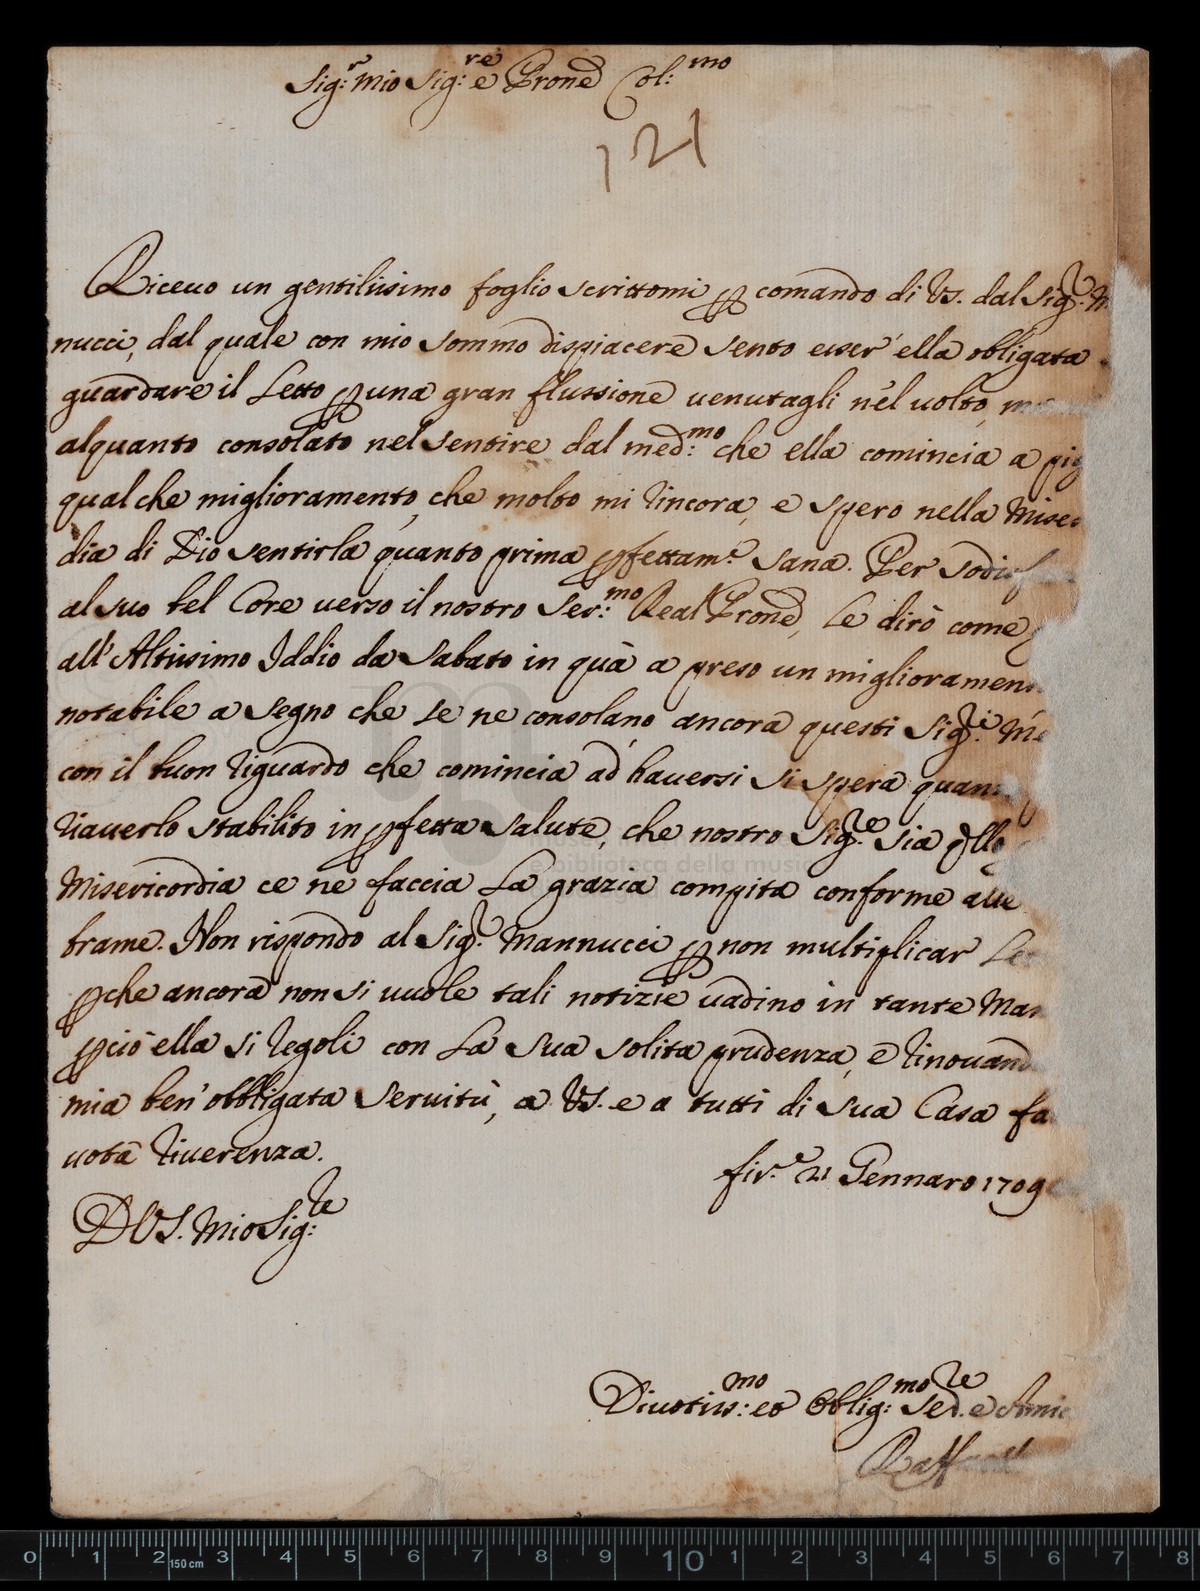 Sig:r Mio Sig:re e Prone Col:mo
121
Riceuo un gentilissimo foglio scrittomi p comando di VS. dal Sig.r M
nucci, dal quale con mio sommo dispiacere sento esser' ella obligata
guardare il Letto p una gran flussione uenutagli nel uolto,
alquanto consolato nel sentire dal med:mo che ella comincia a pig
qualche miglioramento, che molto mi rincora, e spero nella Miser
dia di Dio sentirla quanto prima pfettam.e sana. Per sodisf
al suo bel Core uerso il nostro Ser:mo Real Prone, Le dirò come
all' Altissimo Iddio da Sabato in quà a preso un miglioramen
notabile a segno che se ne consolano ancora questi Sig.ri Me
con il buon riguardo che comincia ad hauersi si spera quan
riauerlo stabilito in pfetta salute, che nostro Sig.re sia plla
Misericordia ce ne faccia La grazia compita conforme alle
brame. Non rispondo al Sig.r Mannucci p non multiplicar Let
pche ancora non si uuole tali notizie uadino in tante Man
pciò ella si regoli con La sua solita prudenza, e rinouand
mia ben' obbligata seruitù, a VS. e a tutti di sua Casa fa
uota riuerenza.
fir.e 21 Gennaro 1709
D VS. Mio Sig:re
Diuotiss:mo ed Obblig:mo Ser.re e Amic
Raffaell